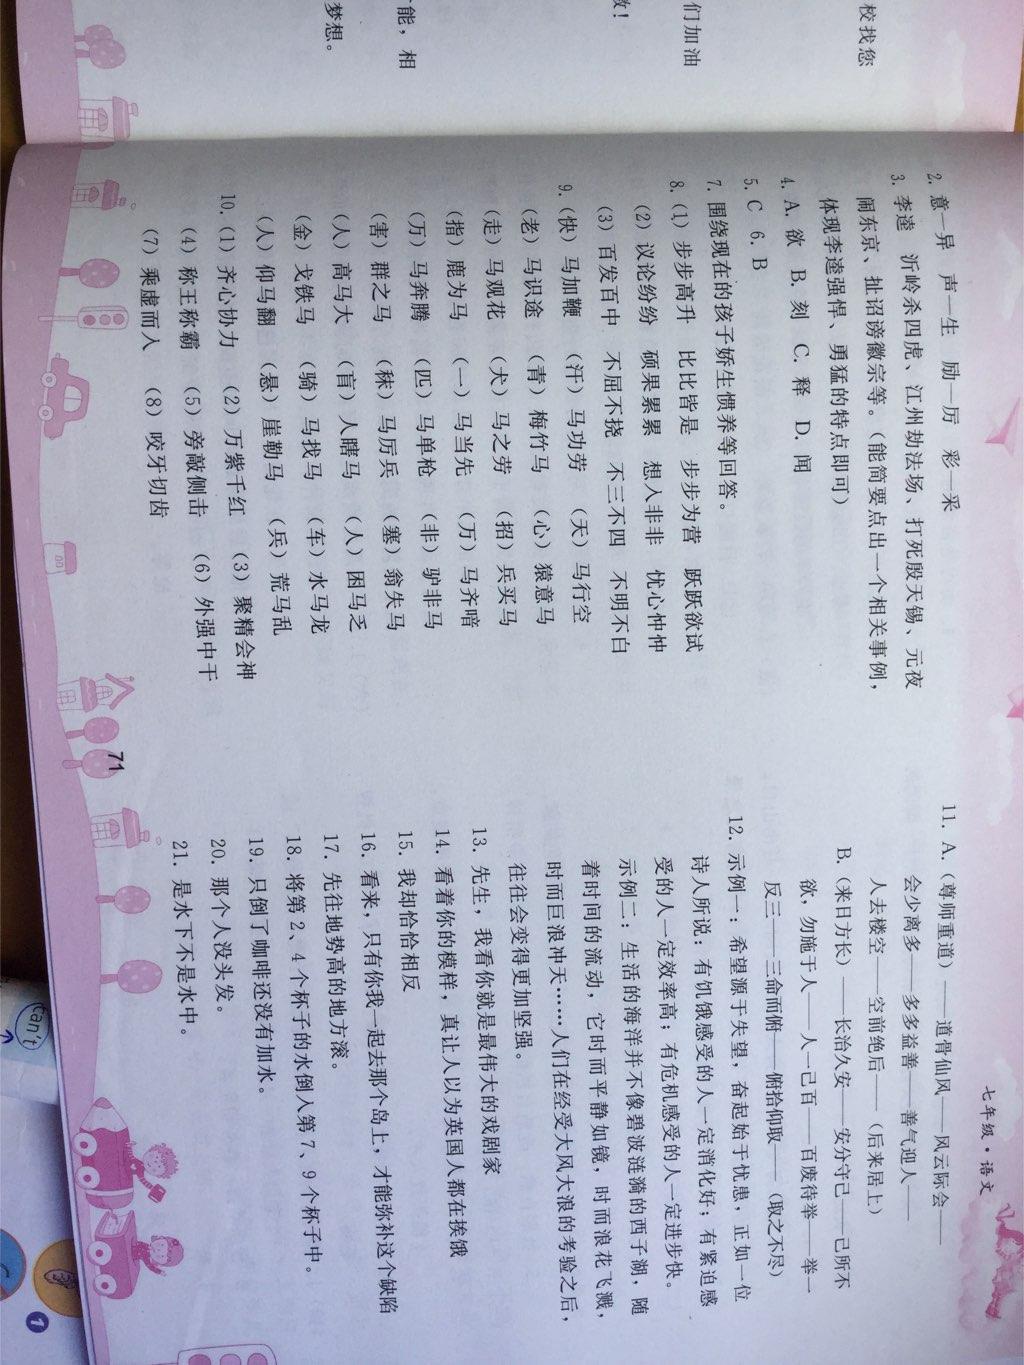 校找您
们加油
敬！
能，相
梦想。
七年级·语文
2. 意—异　声—生　励—厉　彩—采
3. 李逵　沂岭杀四虎、江州劫法场、打死殷天锡、元夜
闹东京、扯诏谤徽宗等。（能简要点出一个相关事例，
体现李逵强悍、勇猛的特点即可）
4. A. 欲　B. 刻　C. 释　D. 闻
5. C　6. B
7. 围绕现在的孩子娇生惯养等回答。
8.（1）步步高升　比比皆是　步步为营　跃跃欲试
（2）议论纷纷　硕果累累　想入非非　忧心忡忡
（3）百发百中　不屈不挠　不三不四　不明不白
9.（快）马加鞭　（汗）马功劳　（天）马行空
（老）马识途　（青）梅竹马　（心）猿意马
（走）马观花　（犬）马之劳　（招）兵买马
（指）鹿为马　（一）马当先　（万）马齐喑
（万）马奔腾　（匹）马单枪　（非）驴非马
（害）群之马　（秣）马厉兵　（塞）翁失马
（人）高马大　（盲）人瞎马　（人）困马乏
（金）戈铁马　（骑）马找马　（车）水马龙
（人）仰马翻　（悬）崖勒马　（兵）荒马乱
10.（1）齐心协力　（2）万紫千红　（3）聚精会神
（4）称王称霸　（5）旁敲侧击　（6）外强中干
（7）乘虚而入　（8）咬牙切齿
71
11. A.（尊师重道）——道骨仙风——风云际会——
会少离多——多多益善——善气迎人——
人去楼空——空前绝后——（后来居上）
B.（来日方长）——长治久安——安分守己——己所不
欲，勿施于人——人一己百——百废待举——举一
反三——三命而俯——俯拾仰取——（取之不尽）
12. 示例一：希望源于失望，奋起始于忧患，正如一位
诗人所说：有饥饿感受的人一定消化好；有紧迫感
受的人一定效率高；有危机感受的人一定进步快。
示例二：生活的海洋并不像碧波涟漪的西子湖，随
着时间的流动，它时而平静如镜，时而浪花飞溅，
时而巨浪冲天……人们在经受大风大浪的考验之后，
往往会变得更加坚强。
13. 先生，我看你就是最伟大的戏剧家
14. 看着你的模样，真让人以为英国人都在挨饿
15. 我却恰恰相反
16. 看来，只有你我一起去那个岛上，才能弥补这个缺陷
17. 先往地势高的地方滚。
18. 将第 2、4 个杯子的水倒入第 7、9 个杯子中。
19. 只倒了咖啡还没有加水。
20. 那个人没头发。
21. 是水下不是水中。
can't
1